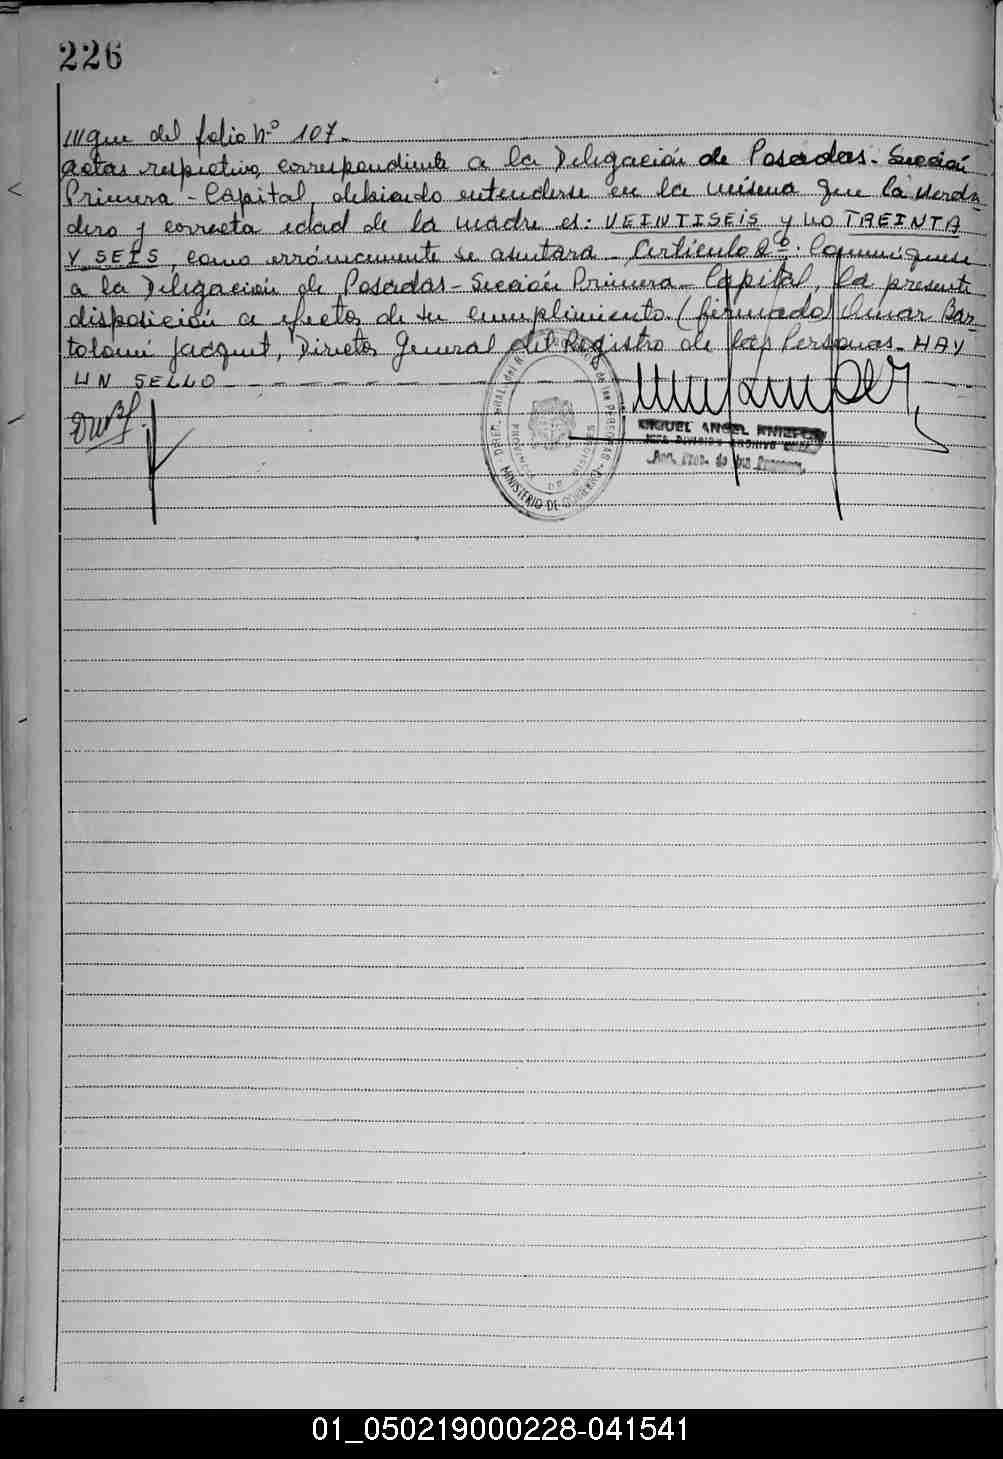 226
///gue del folio Nº 107.-
actas respectivas, correspondiente a la Delegación de Posadas - Sección
Primera - Capital, debiendo entenderse en la misma que la verda-
dera y correcta edad de la madre es: VEINTISEIS y no TREINTA
Y SEIS, como erróneamente se asentara - Artículo 2º. Comuníquese
a la Delegación de Posadas - Sección Primera - Capital, la presente
disposición a efectos de su cumplimiento. (firmado) Omar Bar-
tolomé Jacquet, Director General del Registro de las Personas - HAY
UN SELLO - - - - - - - -
DIREC. GRAL. del R de las PERSONAS
PROVINCIA DE MISIONES
MINISTERIO DE GOBIERNO
MIGUEL ANGEL
JEFE DIVISION ARCHIVO
Prov. de las Personas
01_050219000228-041541